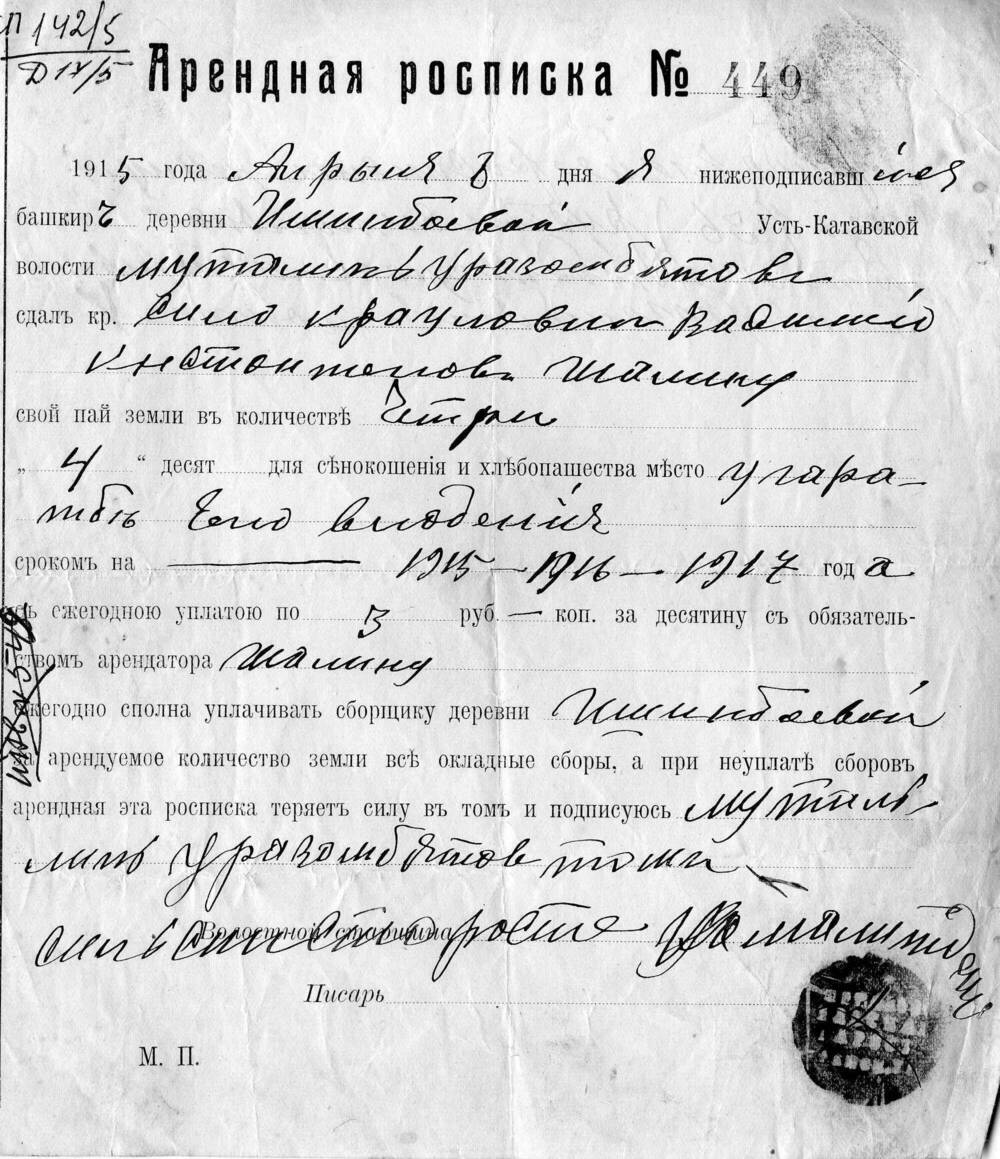 П 142/5
Д IV/5
Арендная росписка № 449
1915 года Апрыля 6 дня Я нижеподписавшійся
башкирЪ деревни Ишимбаевой Усть-Катавской
волости Муталипъ Уразамбятовъ
сдалъ кр. Село Карауловки Василию
Кнстонтенов. Шалину
свой пай земли въ количествѣ Четри
„ 4 “ десят для сѣнокошенія и хлѣбопашества мѣсто у гара-
Его владенія
срокомъ на — 1915 — 1916 — 1917 год а
съ ежегодною уплатою по 3 руб. — коп. за десятину съ обязатель-
ствомъ арендатора Шалину
ежегодно сполна уплачивать сборщику деревни Ишимбаевой
за арендуемое количество земли всѣ окладные сборы, а при неуплатѣ сборовъ
арендная эта росписка теряетъ силу въ томъ и подписуюсь Мутал
липъ Уразамбятов
Волостной старшина
Писарь
М. П.